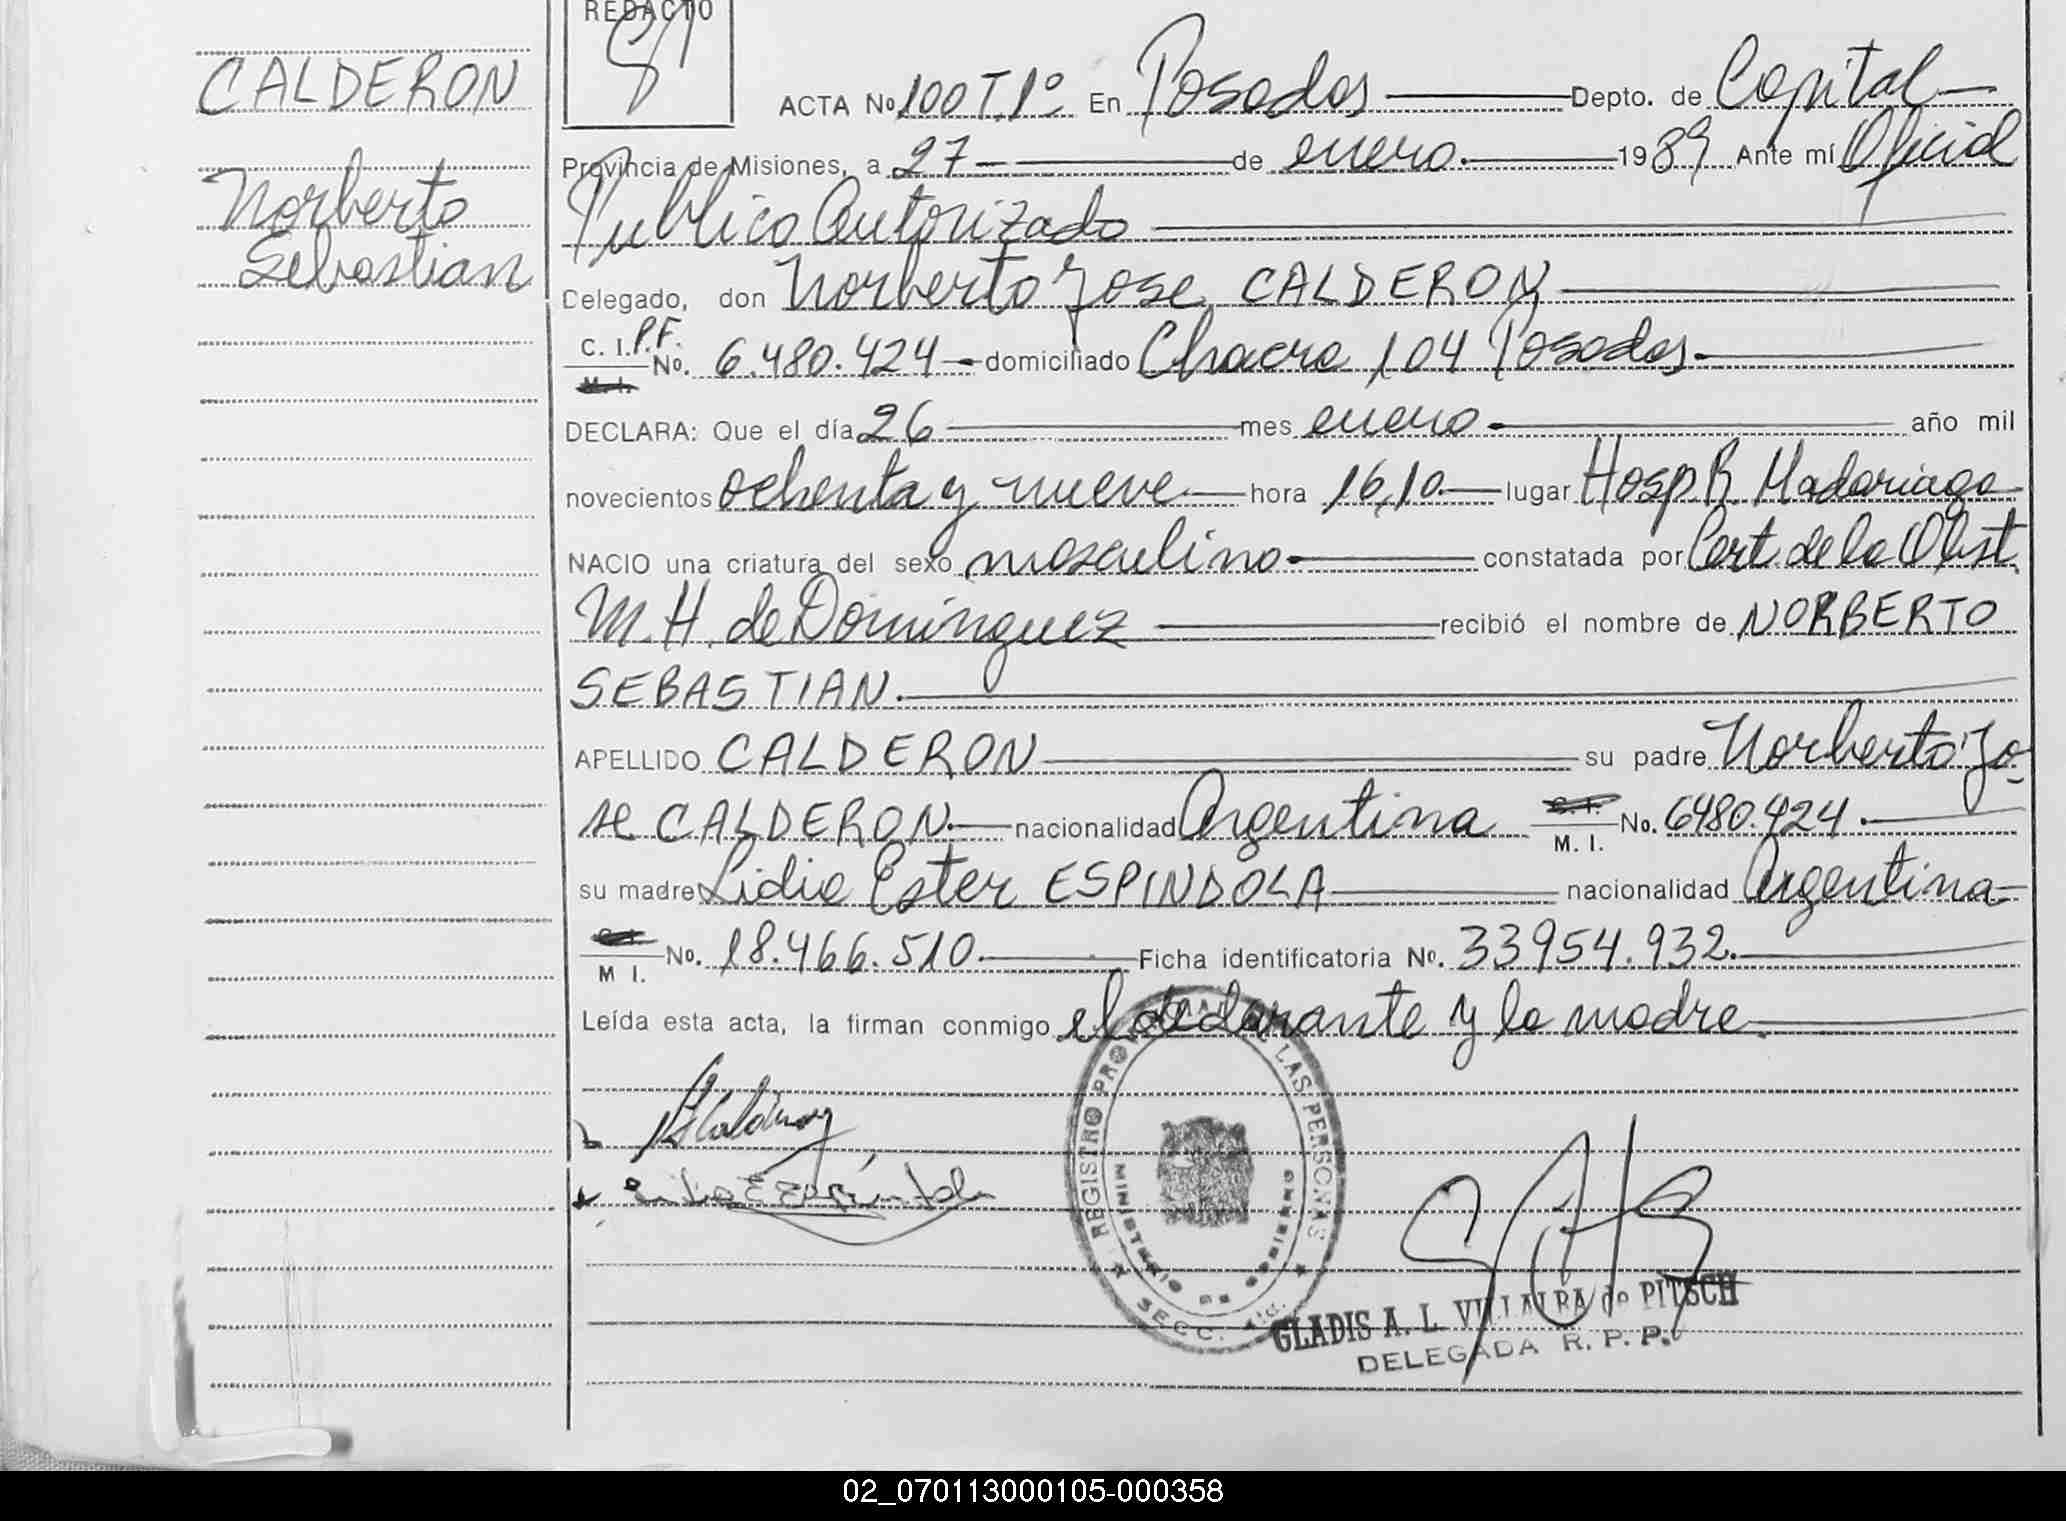 REDACTO
CALDERON
Norberto
Sebastian
ACTA No 100 T.1º En Posadas Depto. de Capital
Provincia de Misiones, a 27 de enero 1989 Ante mí Oficial
Publico Autorizado
Delegado, don Norberto Jose CALDERON
C. I. P.F. M. I. No. 6.480.424 domiciliado Chacra 104 Posadas
DECLARA: Que el día 26 mes enero año mil
novecientos ochenta y nueve hora 16,10 lugar Hosp R. Madariaga
NACIO una criatura del sexo masculino constatada por Cert. de la Obst.
M. H. de Dominguez recibió el nombre de NORBERTO
SEBASTIAN.
APELLIDO CALDERON su padre Norberto Jo-
se CALDERON nacionalidad Argentina C. I. M. I. No. 6480.424.
su madre Lidia Ester ESPINDOLA nacionalidad Argentina
C. I. M I. No. 18.466.510. Ficha identificatoria No. 33954.932.
Leída esta acta, la firman conmigo el declarante y la madre.
REGISTRO LAS PERSONAS
MINISTERIO DE GOBIERNO
SECC.
GLADIS A. L. VILLALBA de PITSCH
DELEGADA R. P. P.
02_070113000105-000358